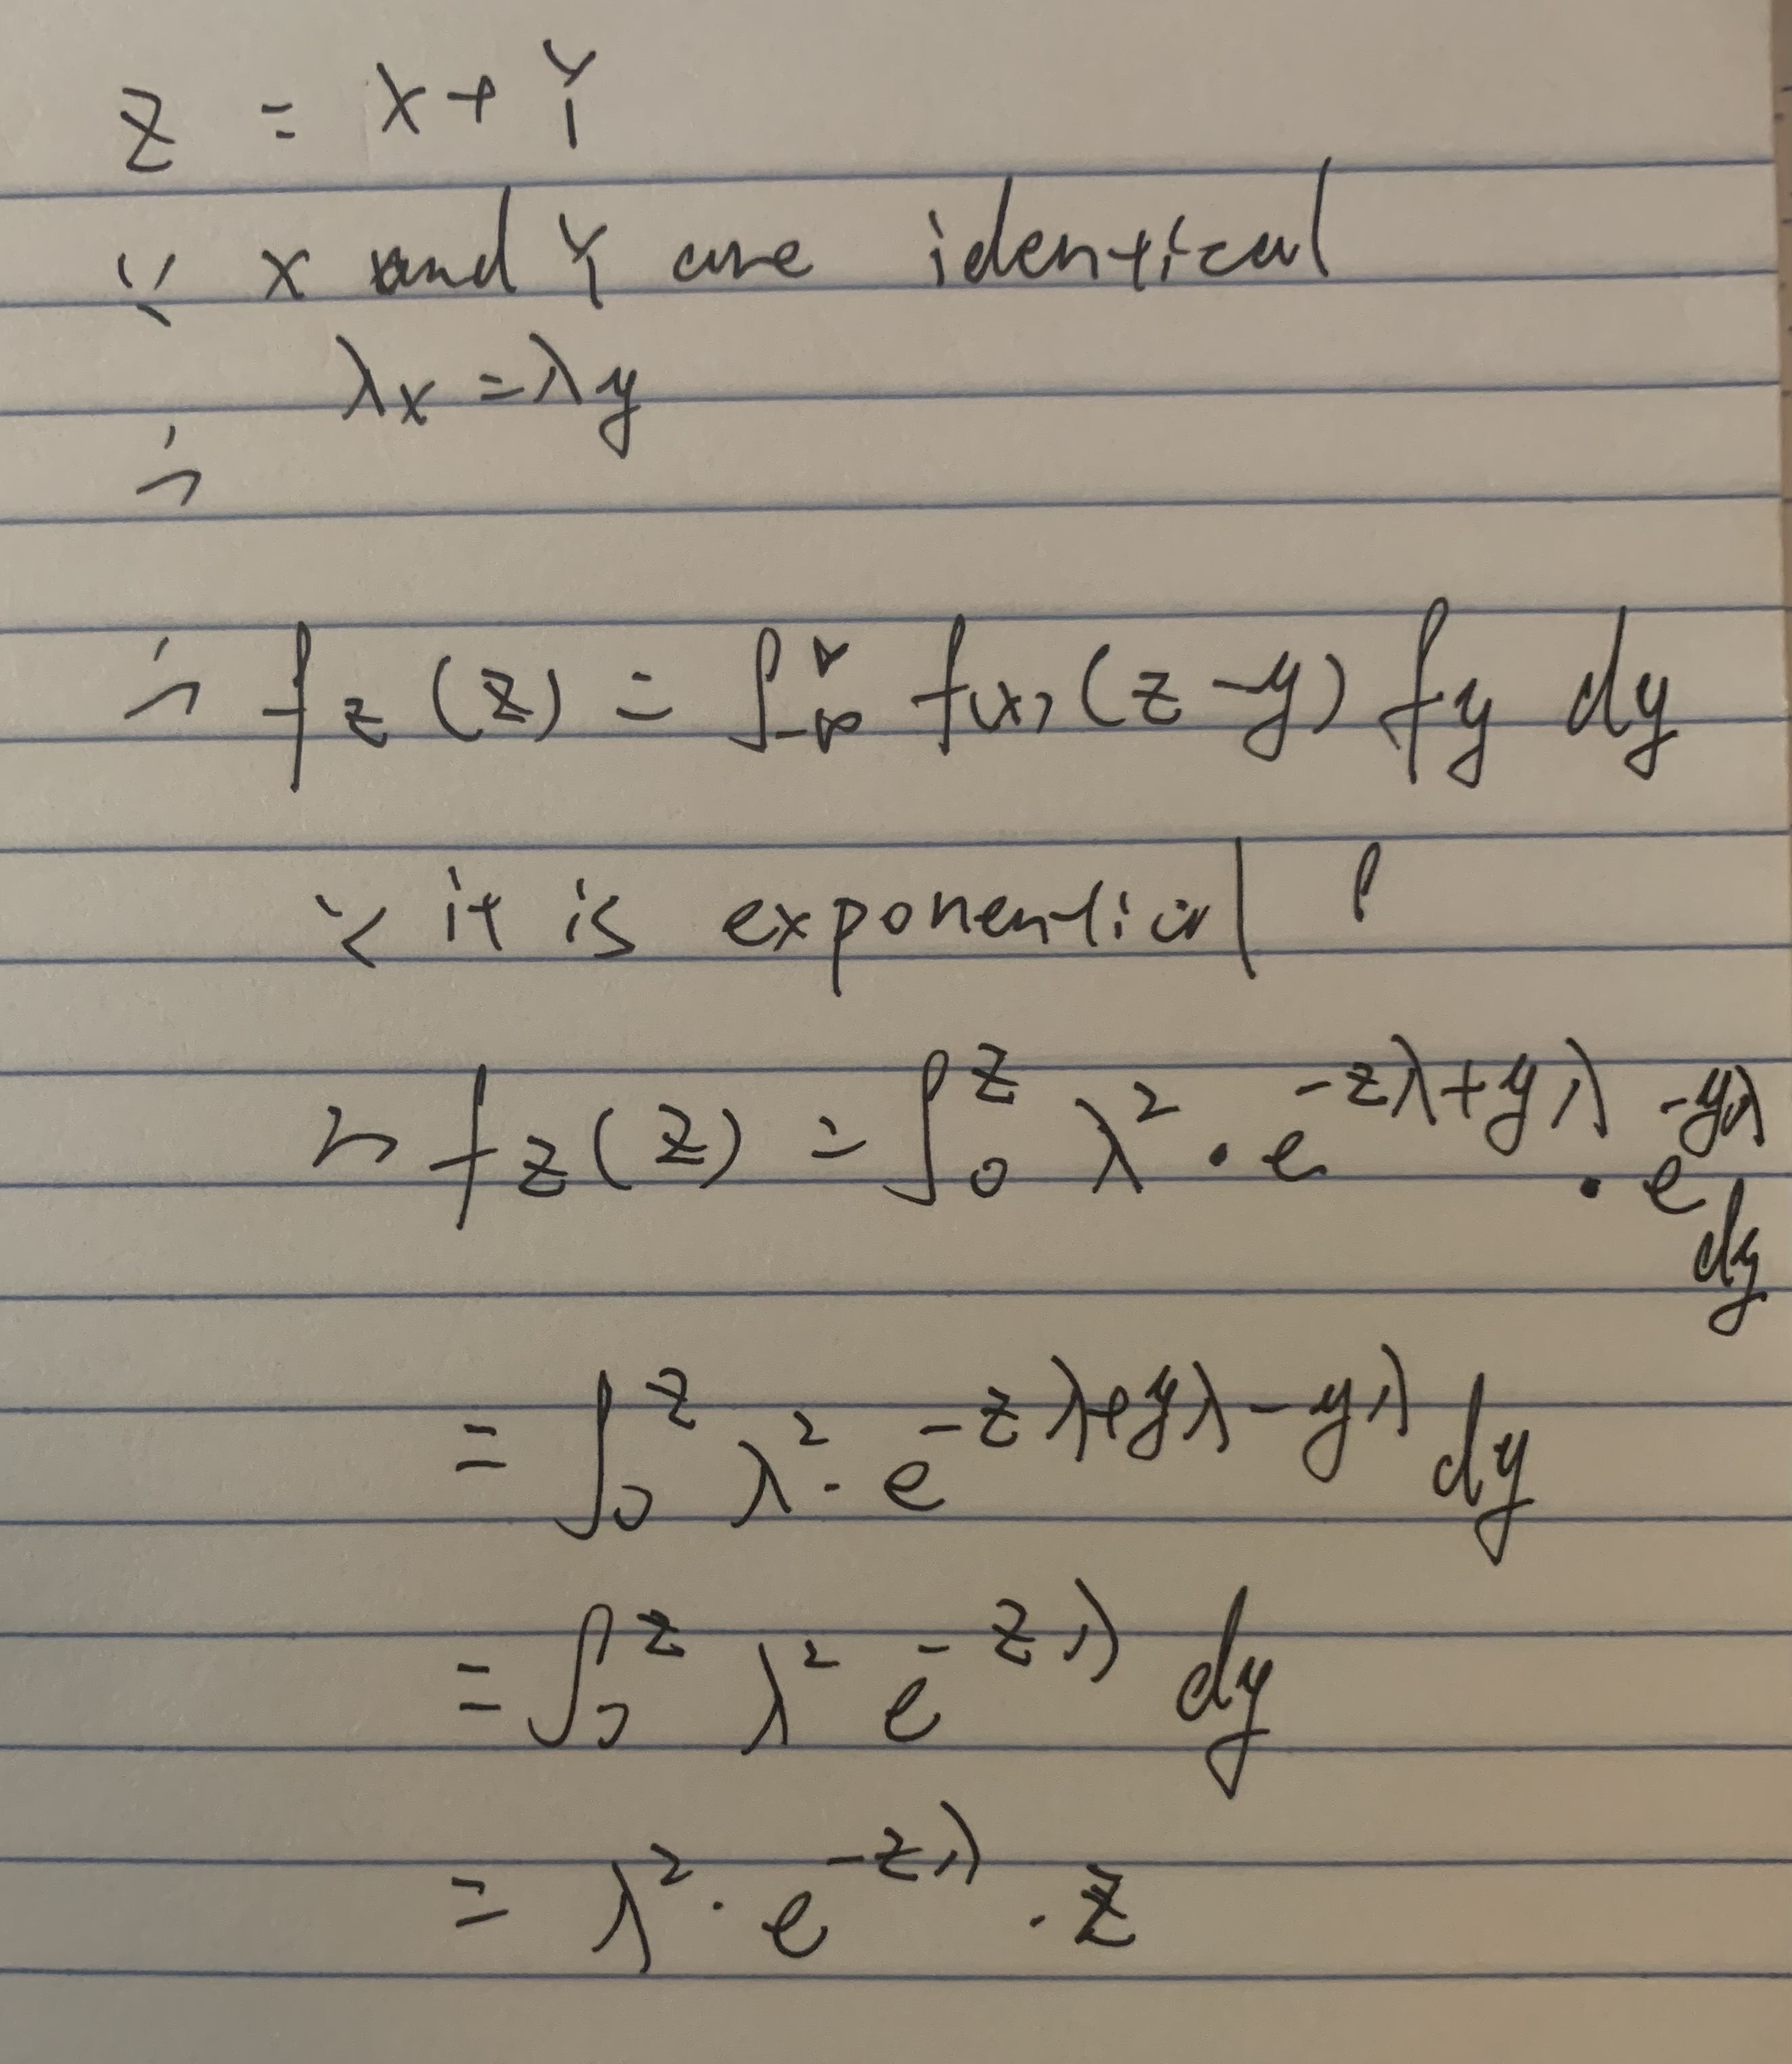 Z = X + Y
∵ X and Y are identical
λx = λy
∴
∴ f_Z(z) = ∫_{-∞}^{∞} f(x)(z-y) fy dy
∵ it is exponential
∴ f_Z(z) = ∫_0^z λ² · e^{-zλ+yλ} · e^{-yλ} dy
= ∫_0^z λ² · e^{-zλ+yλ-yλ} dy
= ∫_0^z λ² e^{-zλ} dy
= λ² · e^{-zλ} · z